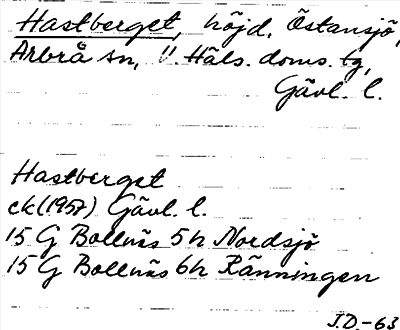 Hastberget, höjd, Östansjö,
Arbrå sn, V. Häls. doms. tg,
Gävl. l.
Hastberget
ek (1957) Gävl. l.
15 G Bollnäs 5h Nordsjö
15 G Bollnäs 6h Ränningen
J.D.-63